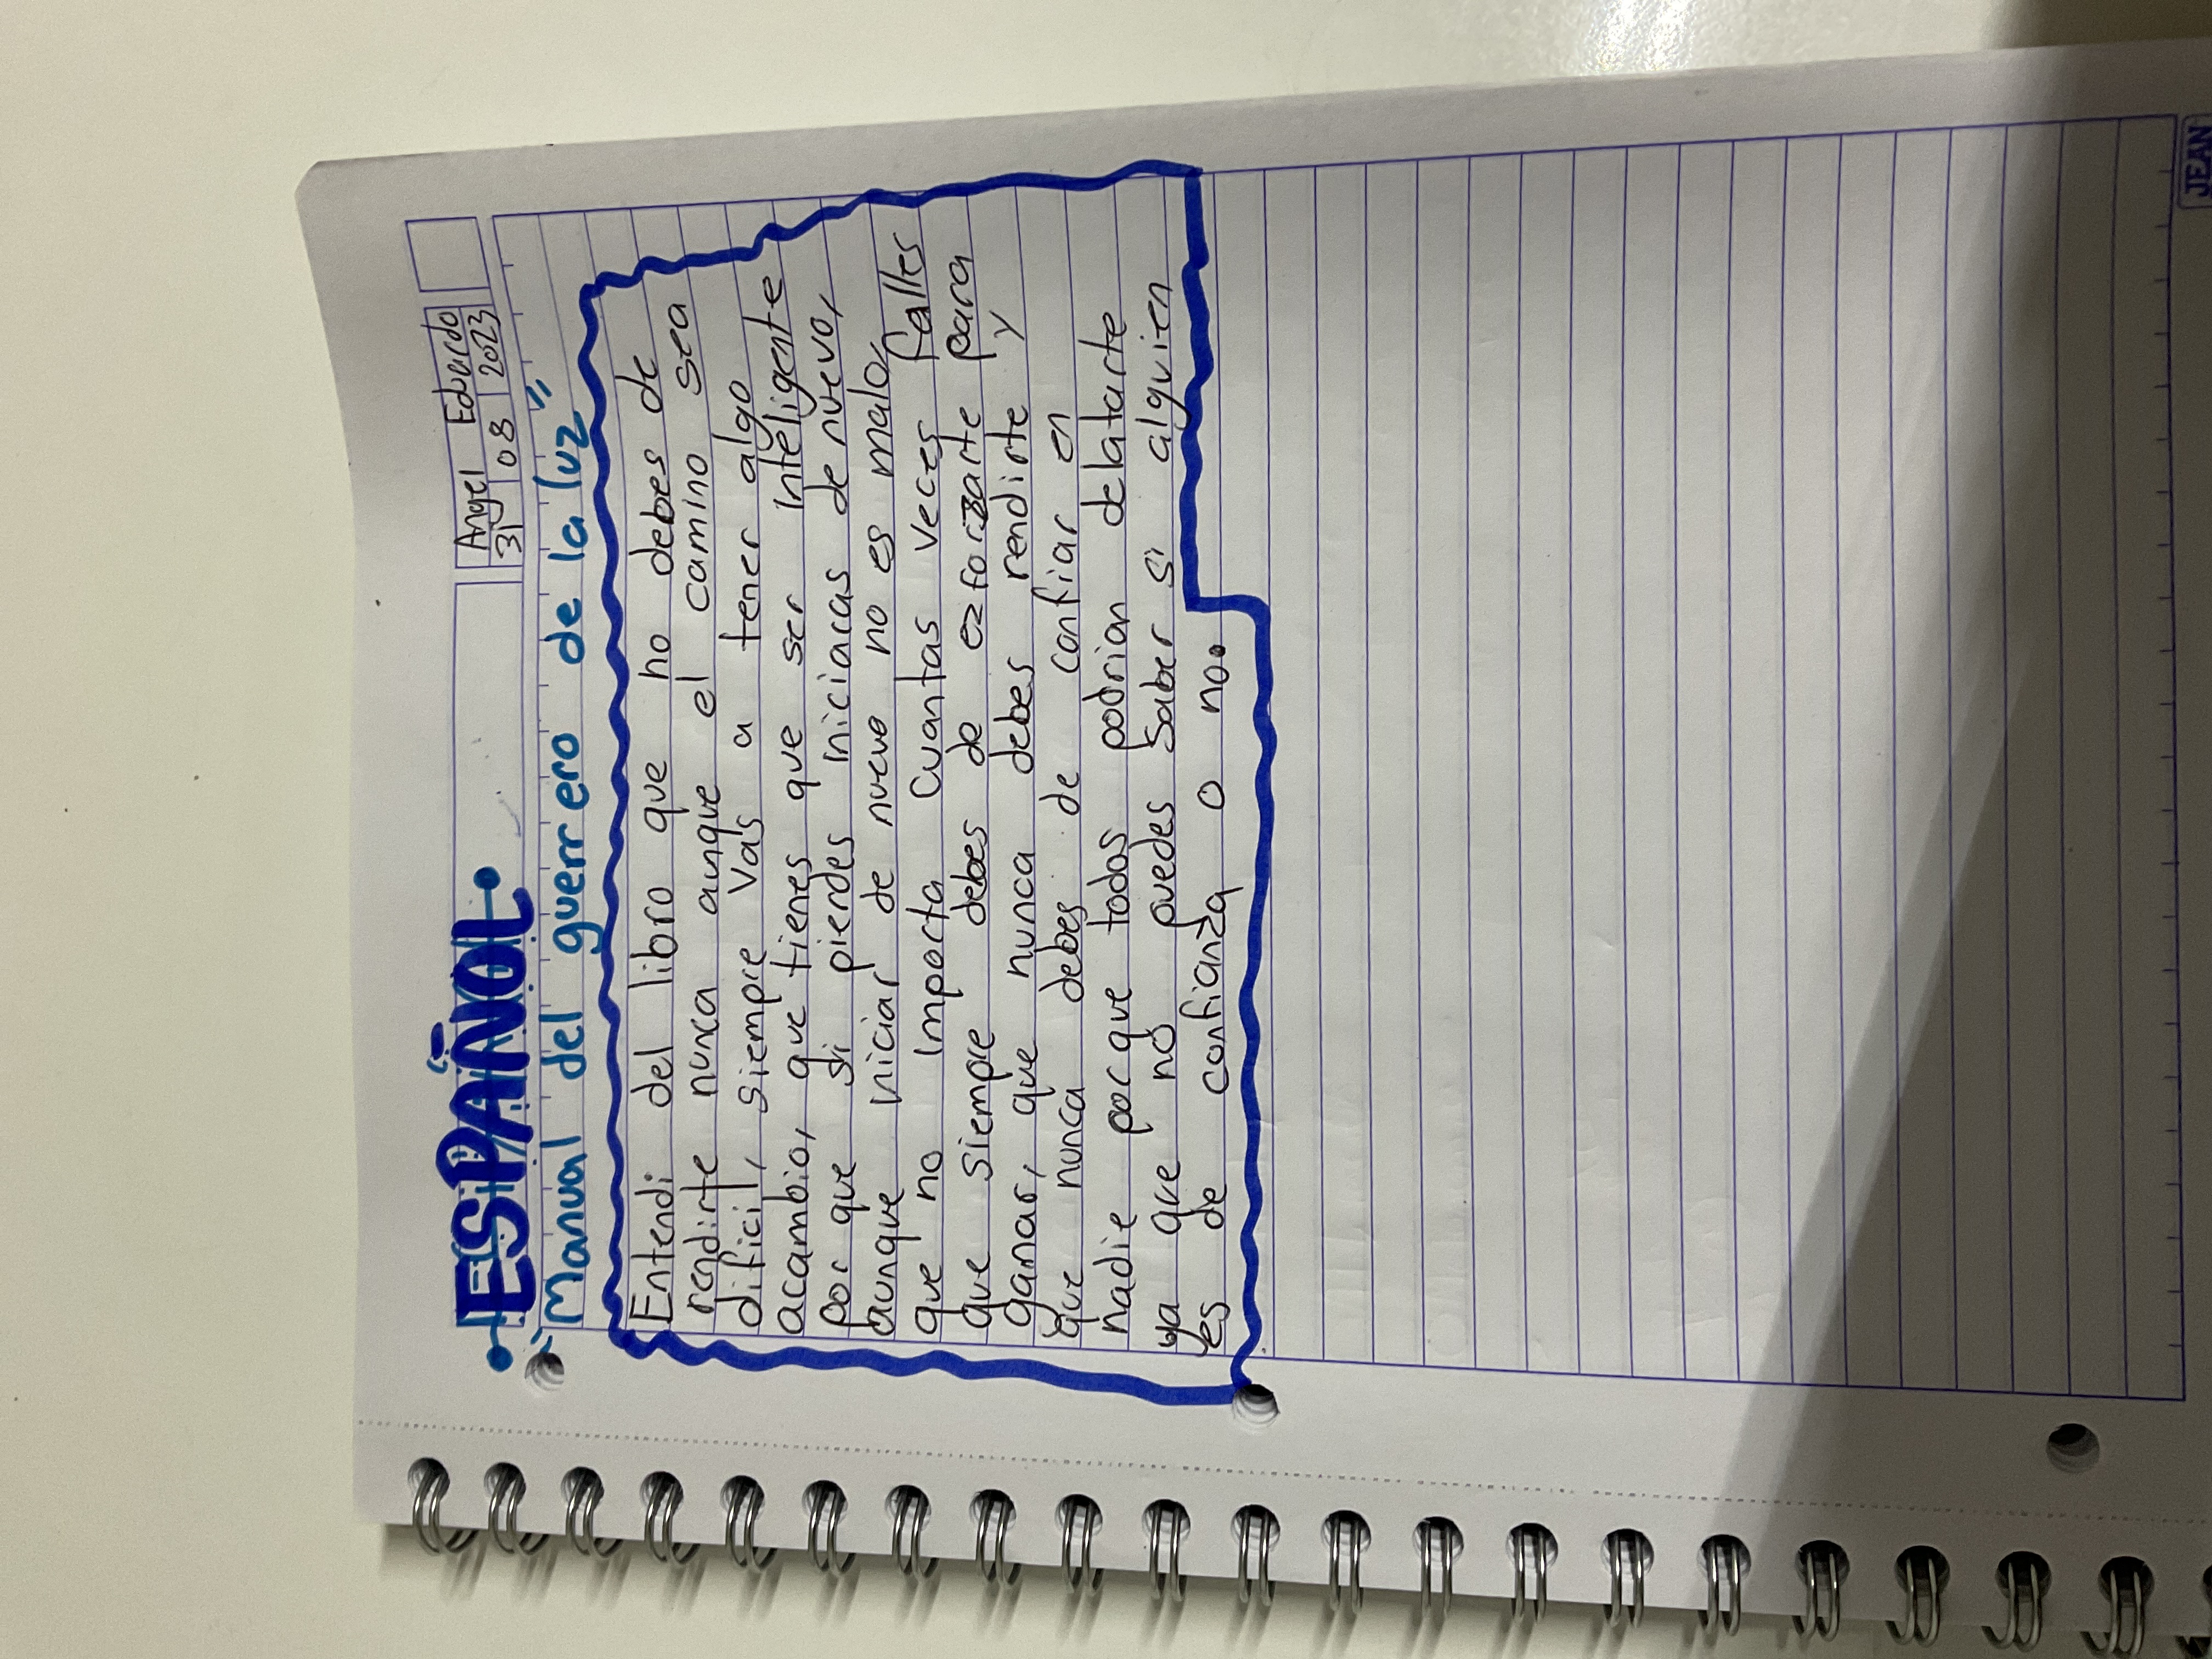 Angel Eduardo
31 08 2023
ESPAÑOL
"Manual del guerrero de la luz"
Entendi del libro que no debes de
rendirte nunca aunque el camino sea
dificil, siempre vas a tener algo
acambio, que tienes que ser inteligente
por que si pierdes iniciaras de nuevo,
aunque iniciar de nuevo no es malo,
que no importa cuantas veces falles
que siempre debes de ezforzarte para
ganar, que nunca debes rendirte y
que nunca debes de confiar en
nadie porque todos podrian delatarte
ya que no puedes saber si alguien
es de confianza o no.
JEAN